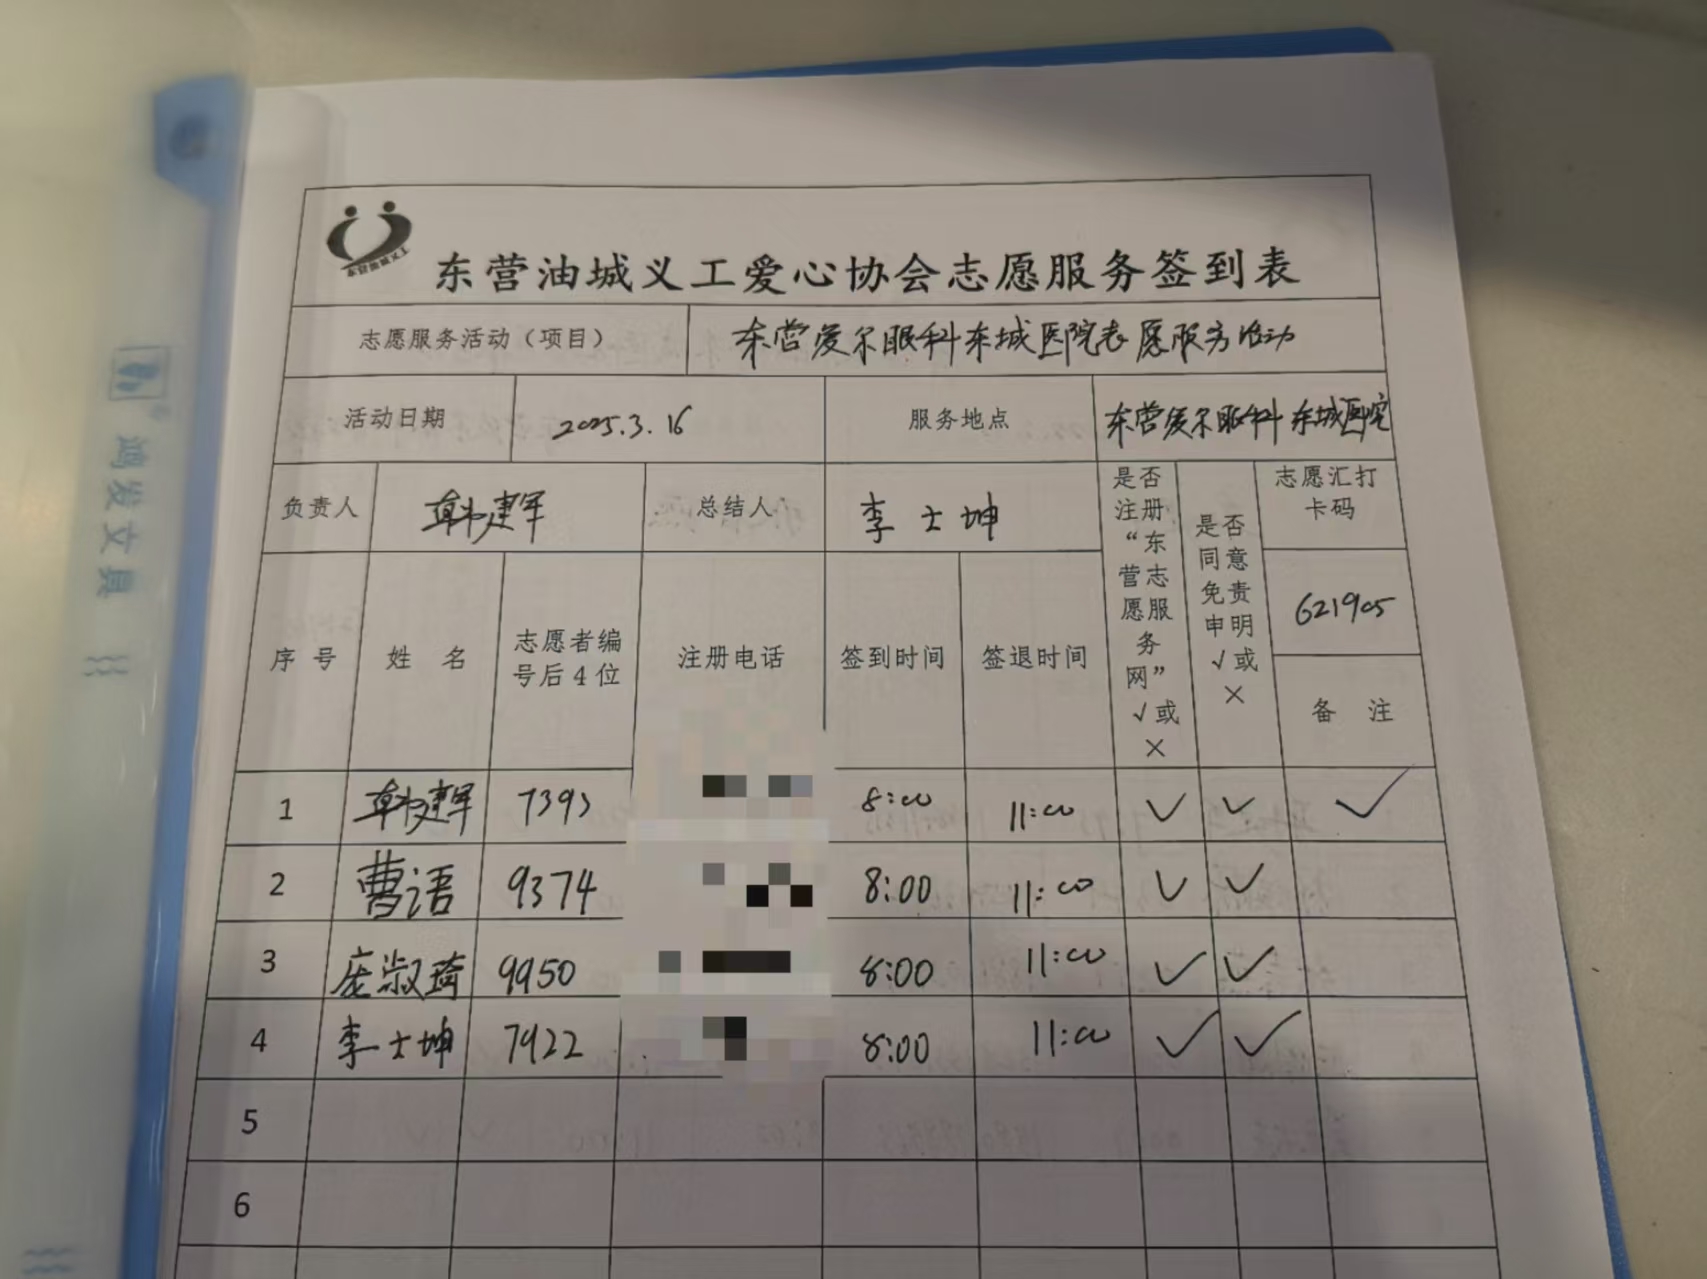 东营油城义工
东营油城义工爱心协会志愿服务签到表
志愿服务活动（项目） 东营爱尔眼科东城医院志愿服务活动
活动日期 2025.3.16 服务地点 东营爱尔眼科东城医院
负责人 韩建军 总结人 李士坤 是否注册“东营志愿服务网”√或× 是否同意免责申明√或× 志愿汇打卡码
621905
序号 姓名 志愿者编号后4位 注册电话 签到时间 签退时间 备注
1 韩建军 7393 8:00 11:00 ✓ ✓ ✓
2 曹语 9374 8:00 11:00 ✓ ✓
3 庞淑琦 9950 8:00 11:00 ✓ ✓
4 李士坤 7922 8:00 11:00 ✓ ✓
5
6
鸿发文具